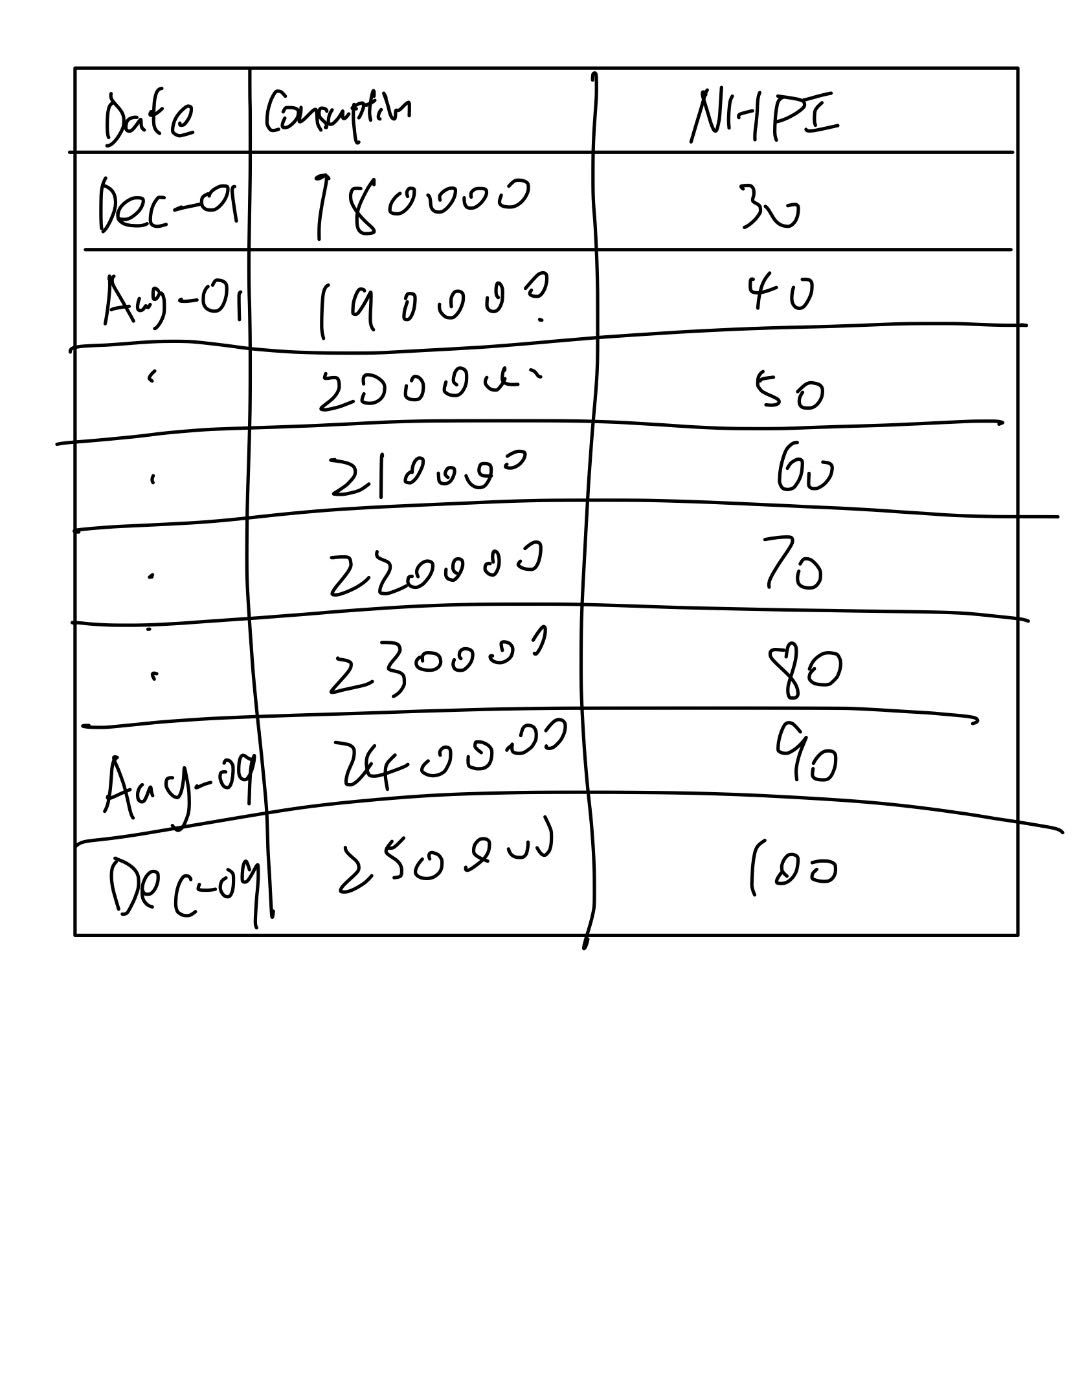 Date Consumption NHPI
Dec-01 180000 30
Aug-01 190000 40
. 200000 50
. 210000 60
. 220000 70
. 230000 80
Aug-09 240000 90
Dec-09 250000 100